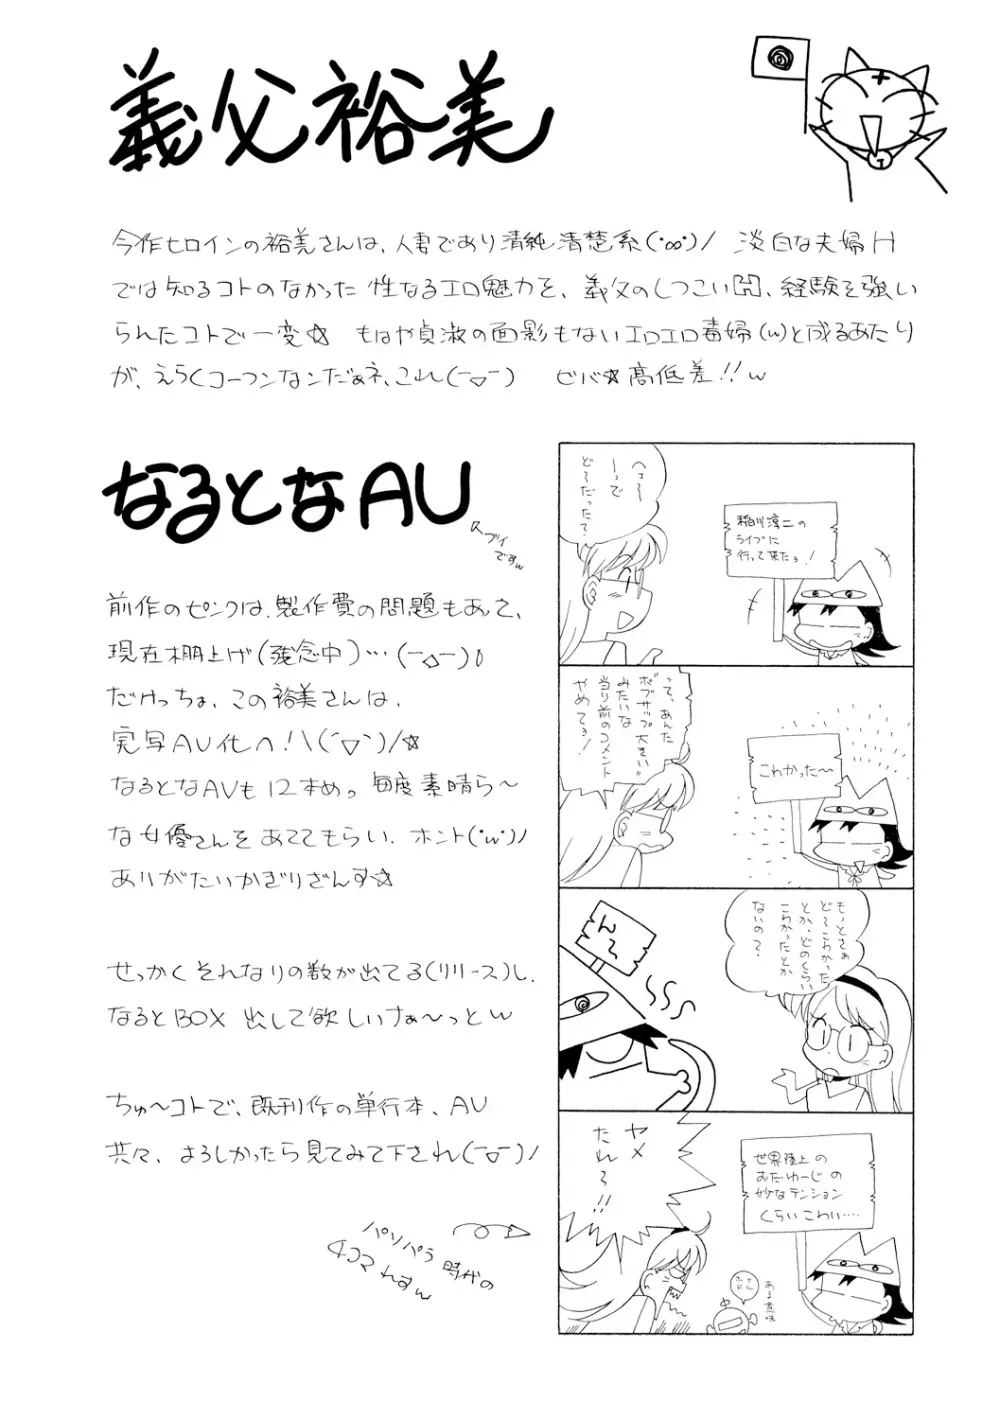 義父裕美
今作ヒロインの裕美さんは、人妻であり清純清楚系(°∞°)/ 淡白な夫婦H
では知るコトのなかった性なるエロ魅力を、義父のしつこい、経験を強い
られたコトで一変☆ もはや貞淑の面影もないエロエロ毒婦(w)と成るあたり
が、えらくコーフンなンだぁネ、これ(ー▽ー) ビバ☆高低差!!w
なるとなAV
スブイ
ですw
前作のピンクは、製作費の問題もあって、
現在棚上げ(残念中)…(ー△ー)
だけっちょ、この裕美さんは、
実写AV化へ!\(´▽`)/☆
なるとなAVも12本め。毎度素晴ら〜
な女優さんをあててもらい、ホント(°w°)/
ありがたいかぎりざんす☆
せっかくそれなりの数が出てる(リリース)し、
なるとBOX 出して欲しいさぁ〜っとw
ちゅ〜コトで、既刊作の単行本、AV
共々、よろしかったら見てみて下され(ー▽ー)/
パリパラ時代の
4コマれすん
へぇ〜
ーっで
ど〜だったて?
稲川淳二の
ライブに
行って来たぅ!
って、あんた
ボブサップ大きい。
みたいな
当り前のコメント
やめてぅ!
こわかった〜
もっとさぁ
ど〜こわかった
とか、どのくらい
こわかったとか
ないの?
ん〜
世界陸上の
おだゆーじの
妙なテンション
くらいこわい‥‥
ヤメ
たれ〜!!
ある意味